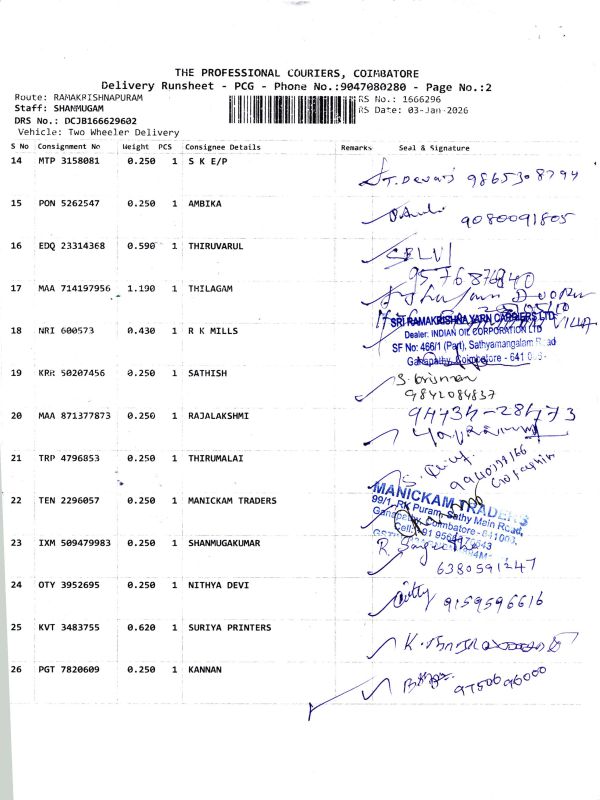 THE PROFESSIONAL COURIERS, COIMBATORE
Delivery Runsheet - PCG - Phone No.:9047080280 - Page No.:2
Route: RAMAKRISHNAPURAM RS No.: 1666296
Staff: SHANMUGAM RS Date: 03-Jan-2026
DRS No.: DCJB166629602
Vehicle: Two Wheeler Delivery
S No Consignment No Weight PCS Consignee Details Remarks Seal & Signature
14 MTP 3158081 0.250 1 S K E/P
9865308794
15 PON 5262547 0.250 1 AMBIKA
9080091805
16 EDQ 23314368 0.590 1 THIRUVARUL SELVI
9576876840
17 MAA 714197956 1.190 1 THILAGAM
SRI RAMAKRISHNA YARN CARRIERS LTD
18 NRI 600573 0.430 1 R K MILLS Dealer: INDIAN OIL CORPORATION LTD
SF No: 466/1 (Part), Sathyamangalam Road
Ganapathy, Coimbatore - 641 006.
19 KRR 50207456 0.250 1 SATHISH
9842084837
20 MAA 871377873 0.250 1 RAJALAKSHMI 94434-28473
21 TRP 4796853 0.250 1 THIRUMALAI
22 TEN 2296057 0.250 1 MANICKAM TRADERS
MANICKAM TRADERS
99/1, RK Puram, Sathy Main Road,
Ganapathy, Coimbatore - 641006,
23 IXM 509479983 0.250 1 SHANMUGAKUMAR
6380591247
24 OTY 3952695 0.250 1 NITHYA DEVI
9159596616
25 KVT 3483755 0.620 1 SURIYA PRINTERS
26 PGT 7820609 0.250 1 KANNAN
9750696000